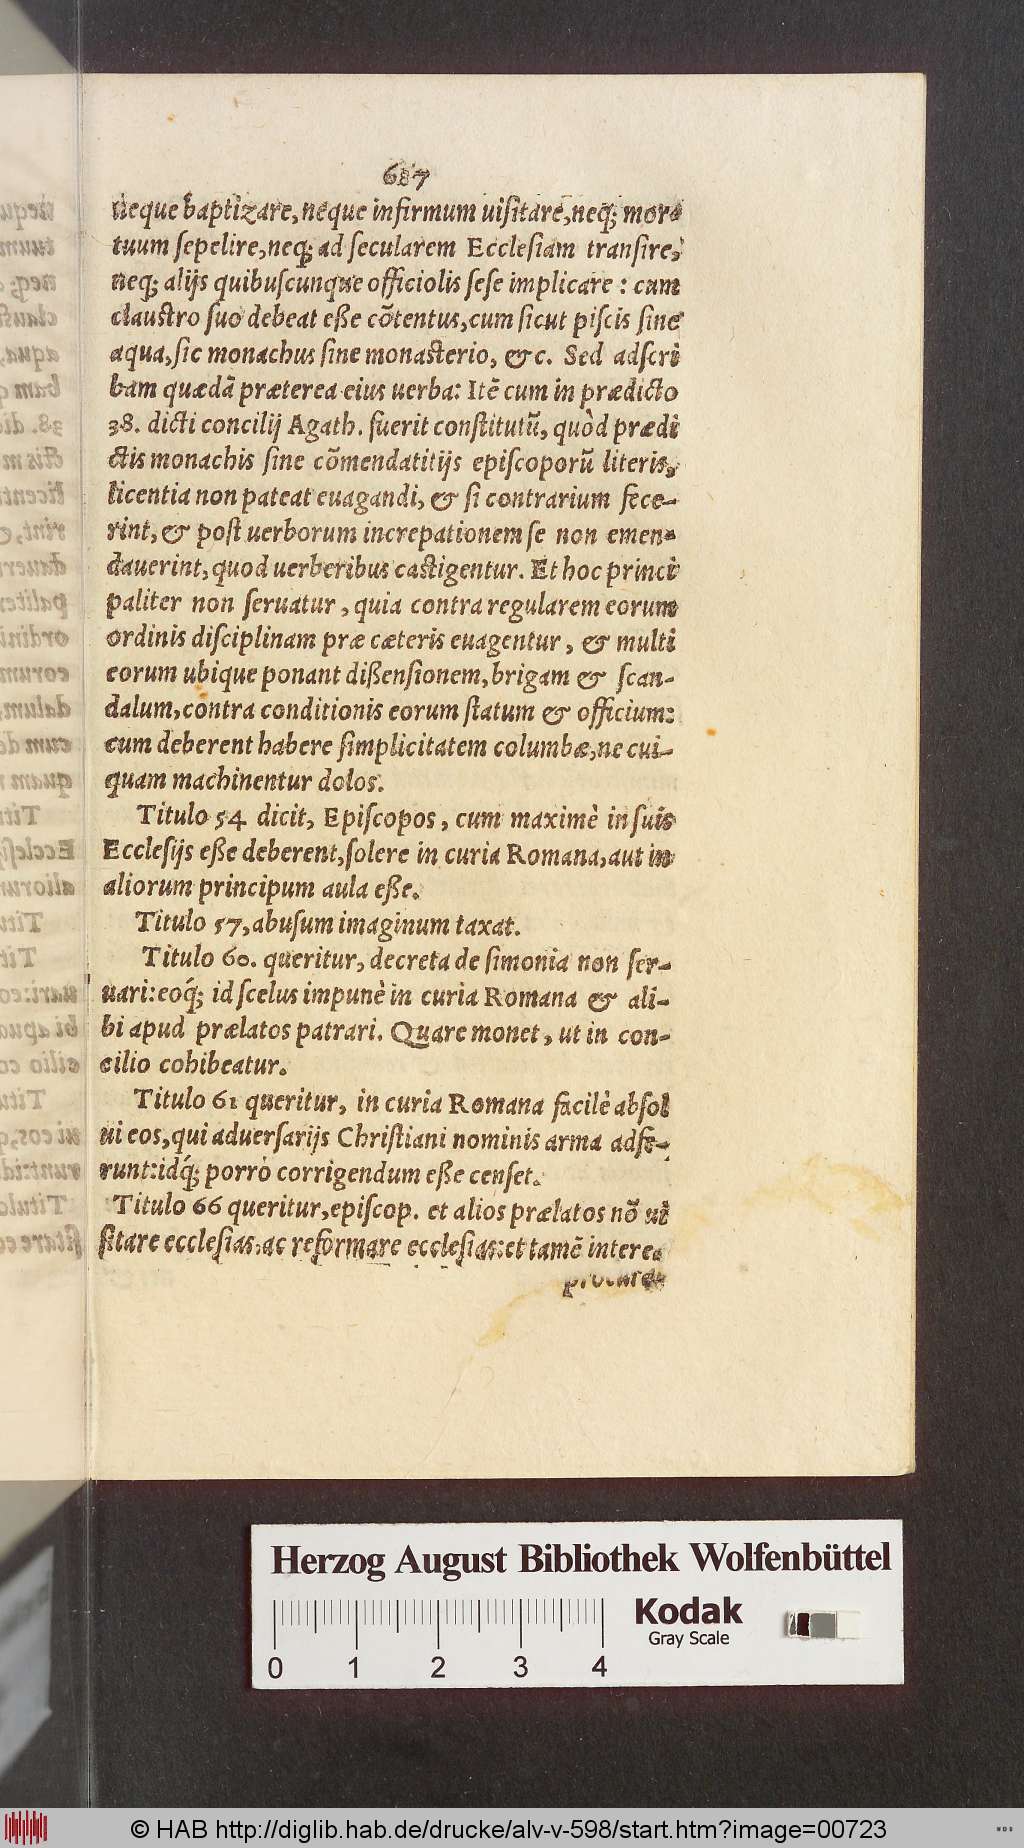 687
neque baptizare, neque infirmum uisitare, neq; mor-
tuum sepelire, neq; ad secularem Ecclesiam transire,
neq; alijs quibuscunque officiolis sese implicare : cum
claustro suo debeat eße cõtentus, cum sicut piscis sine
aqua, sic monachus sine monasterio, &c. Sed adscri
bam quædã præterea eius uerba: Itẽ cum in prædicto
38. dicti concilij Agath. fuerit constitutũ, quòd prædi
ctis monachis sine cõmendatitijs episcoporũ literis,
licentia non pateat euagandi, & si contrarium fece-
rint, & post uerborum increpationem se non emen-
dauerint, quod uerberibus castigentur. Et hoc princi
paliter non seruatur, quia contra regularem eorum
ordinis disciplinam præ cæteris euagentur, & multi
eorum ubique ponant dißensionem, brigam & scan-
dalum, contra conditionis eorum statum & officium:
cum deberent habere simplicitatem columbæ, ne cui-
quam machinentur dolos.
Titulo 54 dicit, Episcopos, cum maximè in suis
Ecclesijs eße deberent, solere in curia Romana, aut in
aliorum principum aula eße.
Titulo 57, abusum imaginum taxat.
Titulo 60. queritur, decreta de simonia non ser-
uari: eoq́; id scelus impunè in curia Romana & ali-
bi apud prælatos patrari. Quare monet, ut in con-
cilio cohibeatur.
Titulo 61 queritur, in curia Romana facilè absol
ui eos, qui aduersarijs Christiani nominis arma adfe-
runt: idq́; porrò corrigendum eße censet.
Titulo 66 queritur, episcop. et alios prælatos nõ ui
sitare ecclesias, ac reformare ecclesias: et tamẽ intere-
procura-
Herzog August Bibliothek Wolfenbüttel
Kodak
Gray Scale
0 1 2 3 4
© HAB http://diglib.hab.de/drucke/alv-v-598/start.htm?image=00723